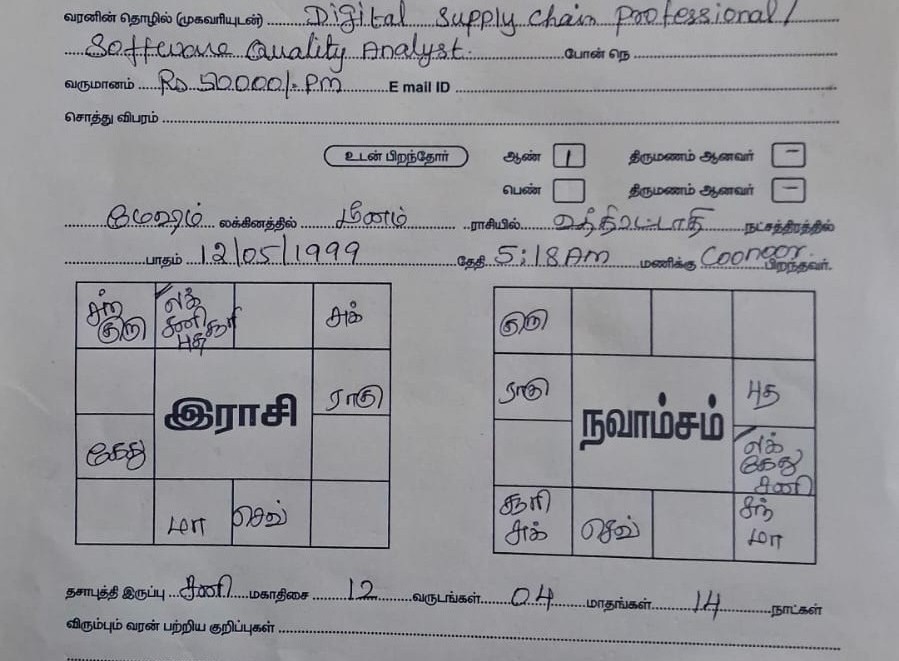 வரனின் தொழில் (முகவரியுடன்) Digital Supply Chain Professional/
Software Quality Analyst. போன் நெ
வருமானம் Rs 50000/- Pm E mail ID
சொத்து விபரம்
உடன் பிறந்தோர் ஆண் 1 திருமணம் ஆனவர் -
பெண் திருமணம் ஆனவர் -
மேஷம் லக்கினத்தில் மீனம் ராசியில் உத்திரட்டாதி நட்சத்திரத்தில்
பாதம் 12/05/1999 தேதி 5:18 Am மணிக்கு Coonoor பிறந்தவர்.
சந் குரு
லக் சனி சூரி புத
சுக்
ராகு
இராசி
கேது
மா
செவ்
குரு
ராகு
புத
நவாம்சம்
லக் கேது சனி
சூரி சுக்
செவ்
சந் மா
தசாபுத்தி இருப்பு சனி மகாதிசை 12 வருடங்கள் 04 மாதங்கள் 14 நாட்கள்
விரும்பும் வரன் பற்றிய குறிப்புகள்